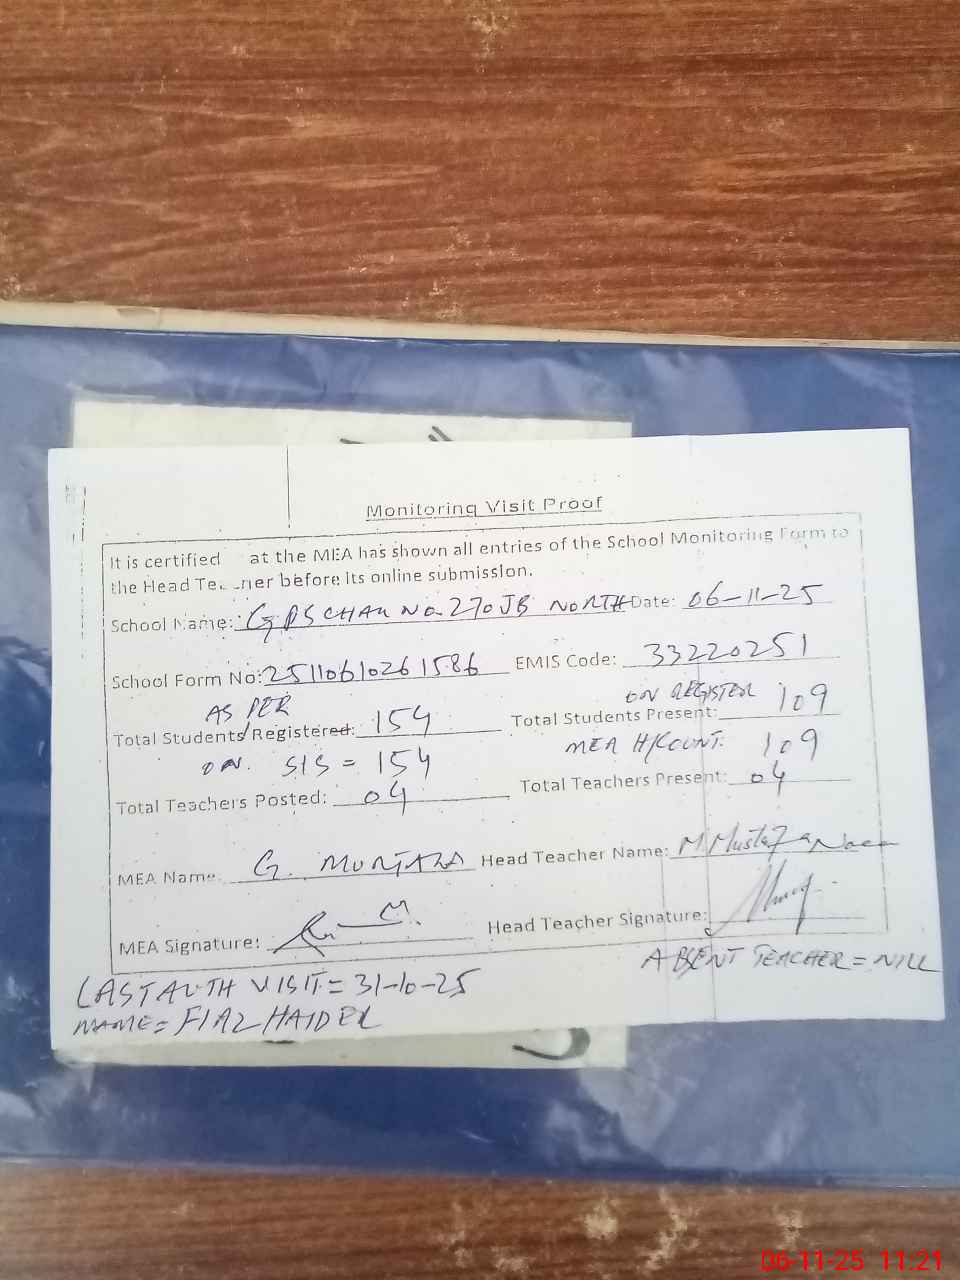 Monitoring Visit Proof
It is certified at the MEA has shown all entries of the School Monitoring Form to
the Head Te ner before its online submission.
School Name: GPS CHAK No. 270 JB NORTH Date: 06-11-25
School Form No: 2511061026 1586 EMIS Code: 33220251
AS PER ON REGISTER
Total Students Registered: 154 Total Students Present: 109
ON. SIS = 154 MEA H/COUNT: 109
Total Teachers Posted: 04 Total Teachers Present: 04
MEA Name: G. MURTAZA Head Teacher Name: M Mustafa
MEA Signature: Head Teacher Signature:
ABSENT TEACHER = NILL
LAST AUTH VISIT = 31-10-25
NAME = FIAZ HAIDER
06-11-25 11:21